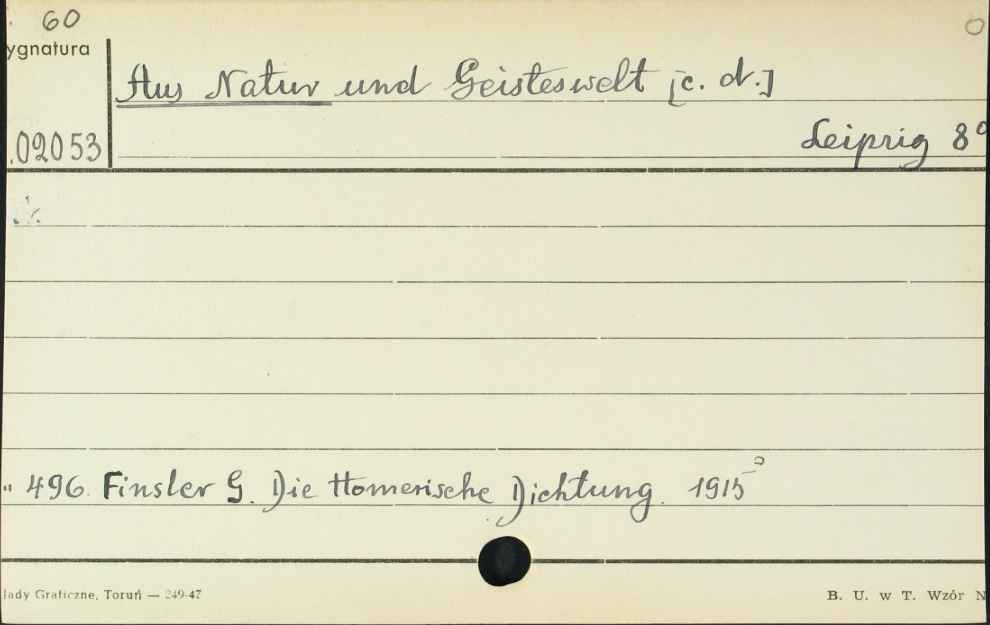 60
ygnatura
Aus Natur und Geisteswelt [c. d.]
02053
Leipzig 8°
" 496. Finsler G. Die Homerische Dichtung. 1915
łady Graficzne, Toruń — 249-47
B. U. w T. Wzór N